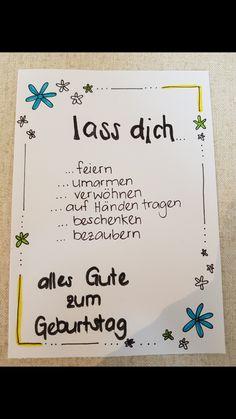 lass dich...
...feiern
...umarmen
...verwöhnen
...auf Händen tragen
...beschenken
...bezaubern
alles Gute
zum
Geburtstag